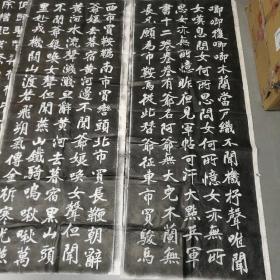 唧唧復唧唧木蘭當户織不聞機杼聲唯聞
女嘆息問女何所思問女何所憶女亦無所
思女亦無所憶昨夜見軍帖可汗大點兵軍
書十二卷卷卷有爺名阿爺無大兒木蘭無
長兄願為市鞍馬從此替爺征東市買駿馬
西市買鞍韉南市買轡頭北市買長鞭朝辭
爺娘去暮宿黄河邊不聞爺娘喚女聲但聞
黄河流水聲濺濺旦辭黄河去暮宿黑山頭
不聞爺娘喚女聲但聞燕山鐵騎鳴啾啾萬
里赴戎機關山渡若飛朔氣傳金柝寒光